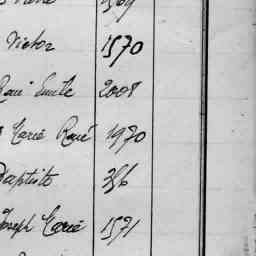 Victor 1570
Emile 2008
Marie René 1970
Baptiste 356
Joseph Marie 1571